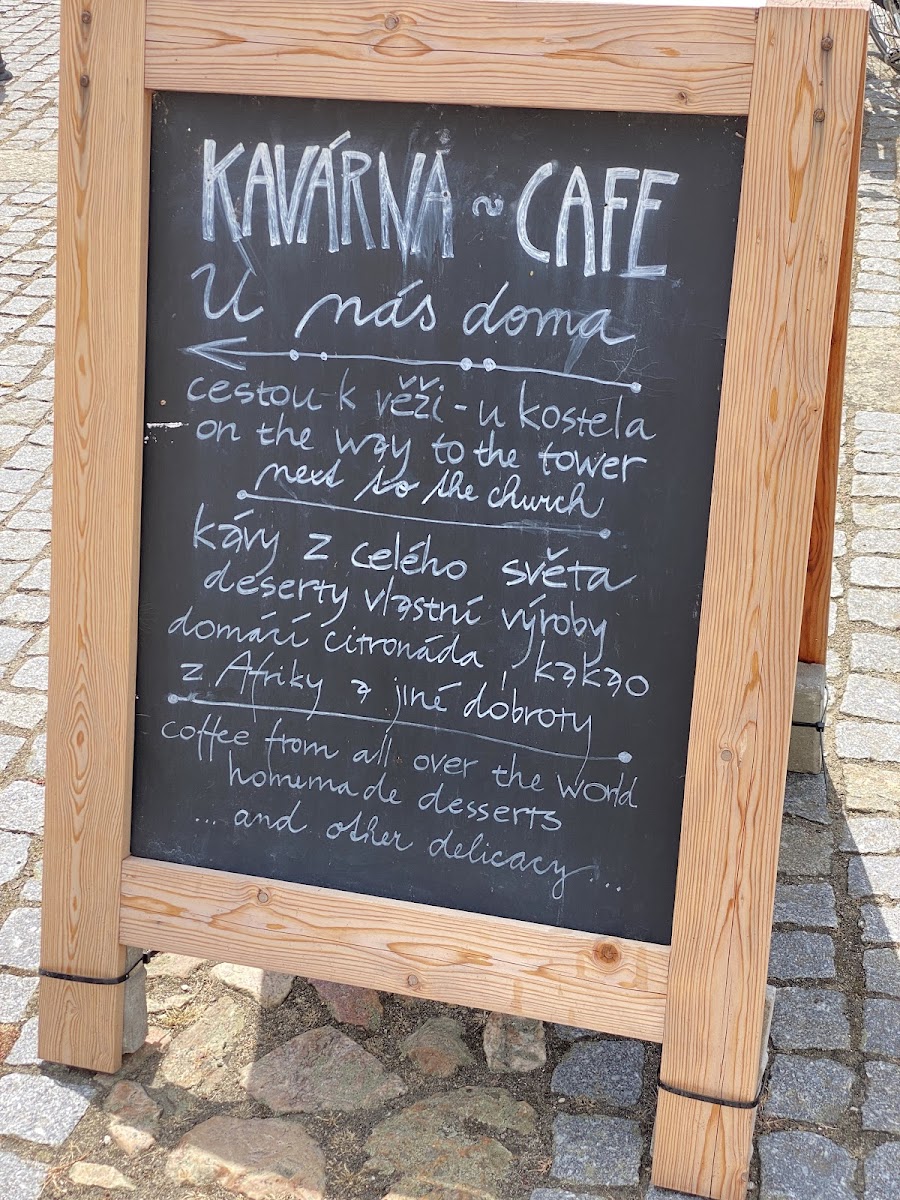 KAVÁRNA ~ CAFE
U nás doma
cestou k věži - u kostela
on the way to the tower
next to the church
kávy z celého světa
deserty vlastní výroby
domácí citronáda, kakao
z Afriky a jiné dobroty
coffee from all over the world
homemade desserts
... and other delicacy ...